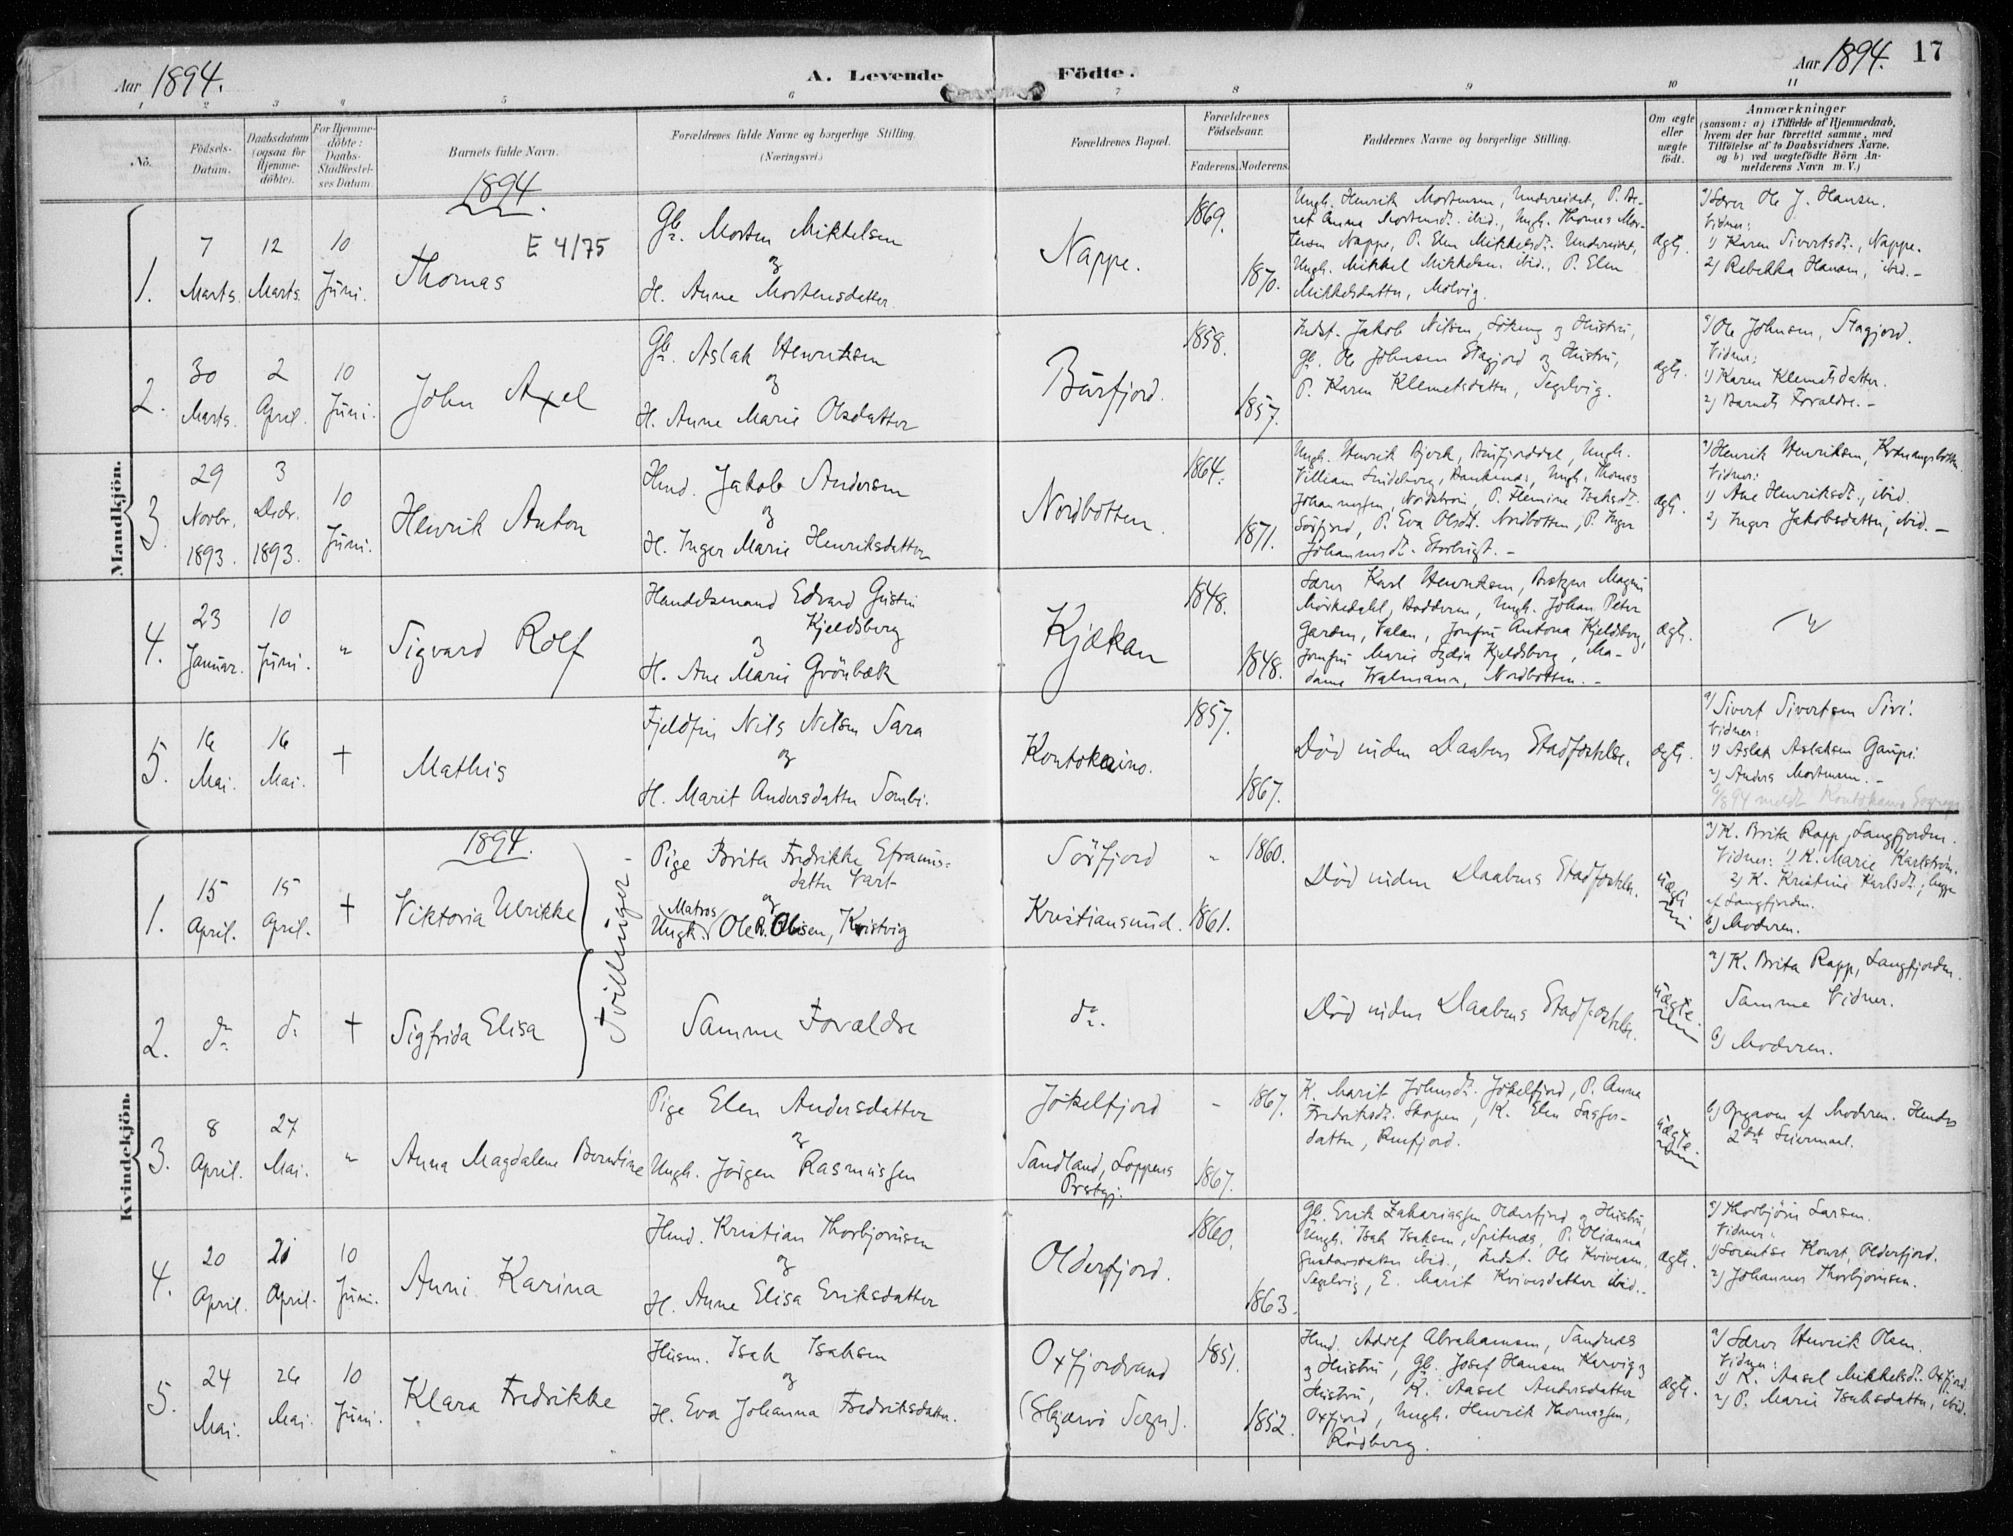 Aar 1894.
A. Levende Födte.
Aar 1894. 17
1 2 3 4 5 6 7 8 9 10 11
No.
Födsels-
Datum.
Daabsdatum
(ogsaa for
Hjemme-
döbte).
For Hjemme-
döbte:
Daabs-
Stadfæstel-
ses Datum.
Barnets fulde Navn.
Forældrenes fulde Navne og borgerlige Stilling.
(Næringsvei.)
Forældrenes Bopæl.
Forældrenes
Födselsaar.
Faderens. Moderens.
Faddernes Navne og borgerlige Stilling.
Om ægte
eller
uægte
födt.
Anmærkninger
(saasom: a) i Tilfælde af Hjemmedaab,
hvem der har forrettet samme, med
Tilföielse af to Daabsvidners Navne,
og b) ved uægtefödte Börn An-
melderens Navn m. V.)
Mandkjön.
1894.
1.
7
Marts.
12
Marts.
10
Juni.
Thomas
E 4/75
Gb. Morten Mikkelsen
og
H. Anne Mortensdatter.
Nappe.
1869.
1870.
Ungk. Henrik Mortensen, Undereidet, P. Be-
ret Anna Mortensdt. ibid., Ungk. Thomas Mor-
tensen Nappe, P. Elen Mikkelsdt. Undereidet,
Ungk. Mikkel Mikkelsen ibid., P. Elen
Mikkelsdatter, Molvig.
ægte.
a) Lærer Ole J. Hansen.
Vidner:
1) Karen Sivertsdt., Nappe.
2) Rebekka Hansen, ibid. -
2.
30
Marts.
2
April.
10
Juni.
John Axel
Gb. Aslak Henriksen
og
H. Anne Marie Olsdatter
Burfjord.
1858.
1857.
Indst. Jakob Nilsen, Sökeng og Hustru,
Gb. Ole Johnsen Stagjord og Hustru,
P. Karen Klemetsdatter, Segelvig.
ægte.
a) Ole Johnsen, Stagjord.
Vidner:
1) Karen Klemetsdatter.
2) Barnets Forældre. -
3.
29
Novbr.
1893.
3
Decbr.
1893.
10
Juni.
Henrik Anton
Hmd. Jakob Andersen
og
H. Inger Marie Henriksdatter
Nordbotten.
1864.
1871.
Ungk. Henrik Bjerk, Burfjorddal, Ungk.
Villiam Lindeberg, Ungk. Thomas
Johannesen, Nordström, P. Flemine Isaksdt.
Sörfjord, P. Eva Olsdt. Nordbotten, P. Inger
Johannesdt. Storbugt. -
ægte.
a) Henrik Henriksen, Kvænangsbotten.
Vidner:
1) Ane Henriksdt., ibid.
2) Inger Jakobsdatter, ibid. -
4.
23
Januar.
10
Juni.
"
Sigvard Rolf
Handelsmand Edvard Gustin
Kjeldsberg
og
H. Ane Marie Grönbæk
Kjækan
1848.
1848.
Lærer Karl Henriksen, Bestyrer Magnus
Mörkedahl, Badderen, Ungk. Johan Peter
Garden, Valan, Jomfru Antona Kjeldsberg,
Jomfru Marie Lydia Kjeldsberg, Ma-
dame Walmann, Nordbotten. -
ægte.
"
5.
16
Mai.
16
Mai.
+
Mathis
Fjeldfin Nils Nilsen Sara
og
H. Marit Andersdatter Tornbi.
Koutokeino.
1857.
1867.
Död inden Daabens Stadfæstelse.
ægte.
a) Sivert Sivertsen Siri.
Vidner:
1) Aslak Aslaksen Gaupi.
2) Anders Mortensen. -
Kvindekjön.
1894.
1.
15
April.
15
April.
+
Viktoria Ulrikke
Tvillinger -
Pige Brita Fredrikke Efraims-
datter Vart-
og
Matros
Ungk. Ole R. Olsen, Kvistvig
Sörfjord
Kristiansund.
"
1861.
1860.
Död inden Daabens Stadfæstelse.
uægte
a) K. Brita Rapp, Langfjorden.
Vidner: 1) K. Marie Karlström.
2) K. Kristine Karlsdt., begge
af Langfjorden.
b) Moderen.
2.
do
do
+
Sigfrida Elisa
Samme Forældre
do.
Död inden Daabens Stadfæstelse.
uægte.
a) K. Brita Rapp, Langfjorden.
Samme Vidner.
b) Moderen.
3.
8
April.
27
Mai.
"
Anna Magdalena Berntine
Pige Elen Andersdatter
og
Ungk. Jörgen Rasmussen
Jökelfjord
Sandland, Loppens
Prstgj.
-
1867.
1867.
K. Marit Johnsdt. Jökelfjord, P. Anna
Fredriksdt. Skogen, K. Elen
datter, Burfjord.
uægte.
b) Opgaven af Moderen. Hendes
2det Leiermaal.
4.
20
April.
21
April.
10
Juni.
Anni Karina
Hmd. Kristian Thorbjörnsen
og
H. Anne Elisa Eriksdatter
Olderfjord.
1860.
1863.
Gb. Erik Zakariassen Olderfjord og Hustru,
Ungk. Isak Isaksen, Spitnæs, P. Olianna
Gustavsdatter ibid., Indst. Ole Kvivesen
Segelvig, E. Marit Kvivesdatter ibid. -
ægte.
a) Thorbjörn Larsen.
Vidner:
1) Lorentse Olderfjord.
2) Johannes Thorbjörnsen.
5.
24
Mai.
26
Mai.
10
Juni.
Klara Fredrikke
Husm. Isak Isaksen
og
H. Eva Johanna Fredriksdatter.
Oxfjordvand
(Skjærvö Sogn).
1851.
1852.
Hmd. Adolf Abrahamsen, Sandnes
og Hustru, Gb. Josef Hansen Kervig og
Hustru, K. Aasel Andersdatter
Oxfjord, Ungk. Henrik Thomassen,
Rödberg.
ægte.
a) Lærer Henrik Olsen.
Vidner:
1) K. Aasel Mikkelsdt. Oxfjord.
2) P. Marie Isaksdatter, ibid.